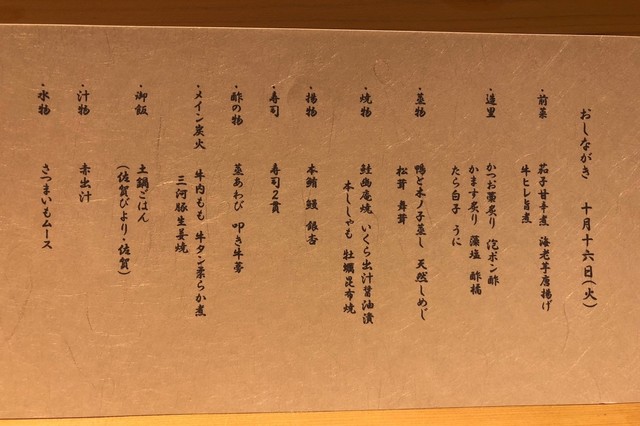 おしながき 十月十六日(火)
・前菜 茄子甘辛煮 海老芋唐揚げ
牛ヒレ旨煮
・造里 かつお藁炙り 泡ポン酢
かます炙り 藻塩 酢橘
たら白子 うに
・蒸物 鴨と木ノ子蒸し 天然しめじ
松茸 舞茸
・焼物 鮭幽庵焼 いくら出汁醤油漬
本ししゃも 牡蠣昆布焼
・揚物 本鮪 鰻 銀杏
・寿司 寿司2貫
・酢の物 蒸あわび 叩き牛蒡
・メイン炭火 牛内もも 牛タン柔らか煮
三河豚生姜焼
・御飯 土鍋ごはん
(佐賀びより・佐賀)
・汁物 赤出汁
・水物 さつまいもムース